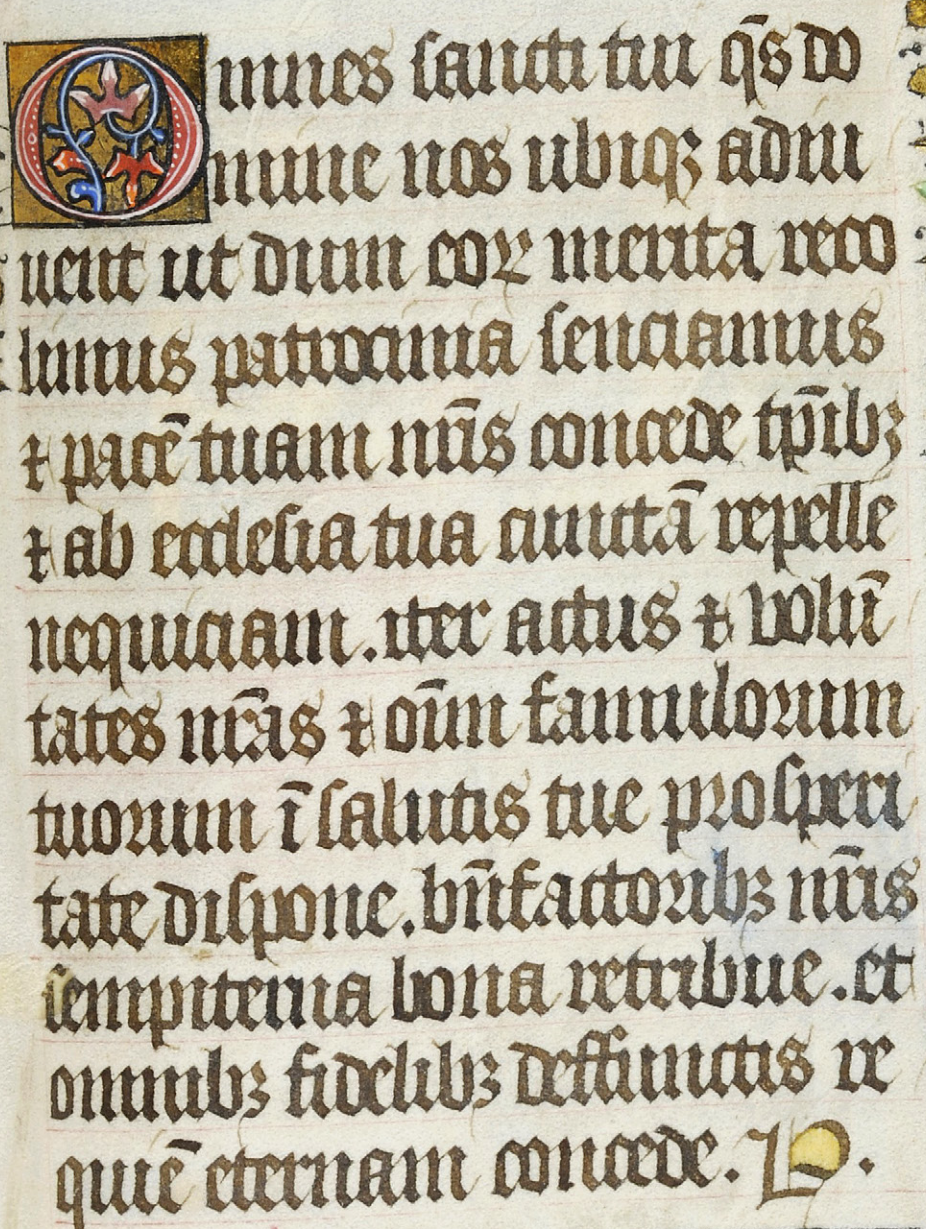 Omnes sancti tui q̄s do
mine nos ubiqꝫ adiu
uent ut dum eoꝝ merita reco
limus patrocinia senciamus
⁊ pacē tuam nr̄is concede tp̄ibꝫ
⁊ ab ecclesia tua cunctā repelle
nequiciam. iter actus ⁊ volū
tates nr̄as ⁊ oīm famulorum
tuorum ī salutis tue prosperi
tate dispone. bn̄factoribꝫ nr̄is
sempiterna bona retribue. et
omnibꝫ fidelibꝫ deffunctis re
quiē eternam concede.